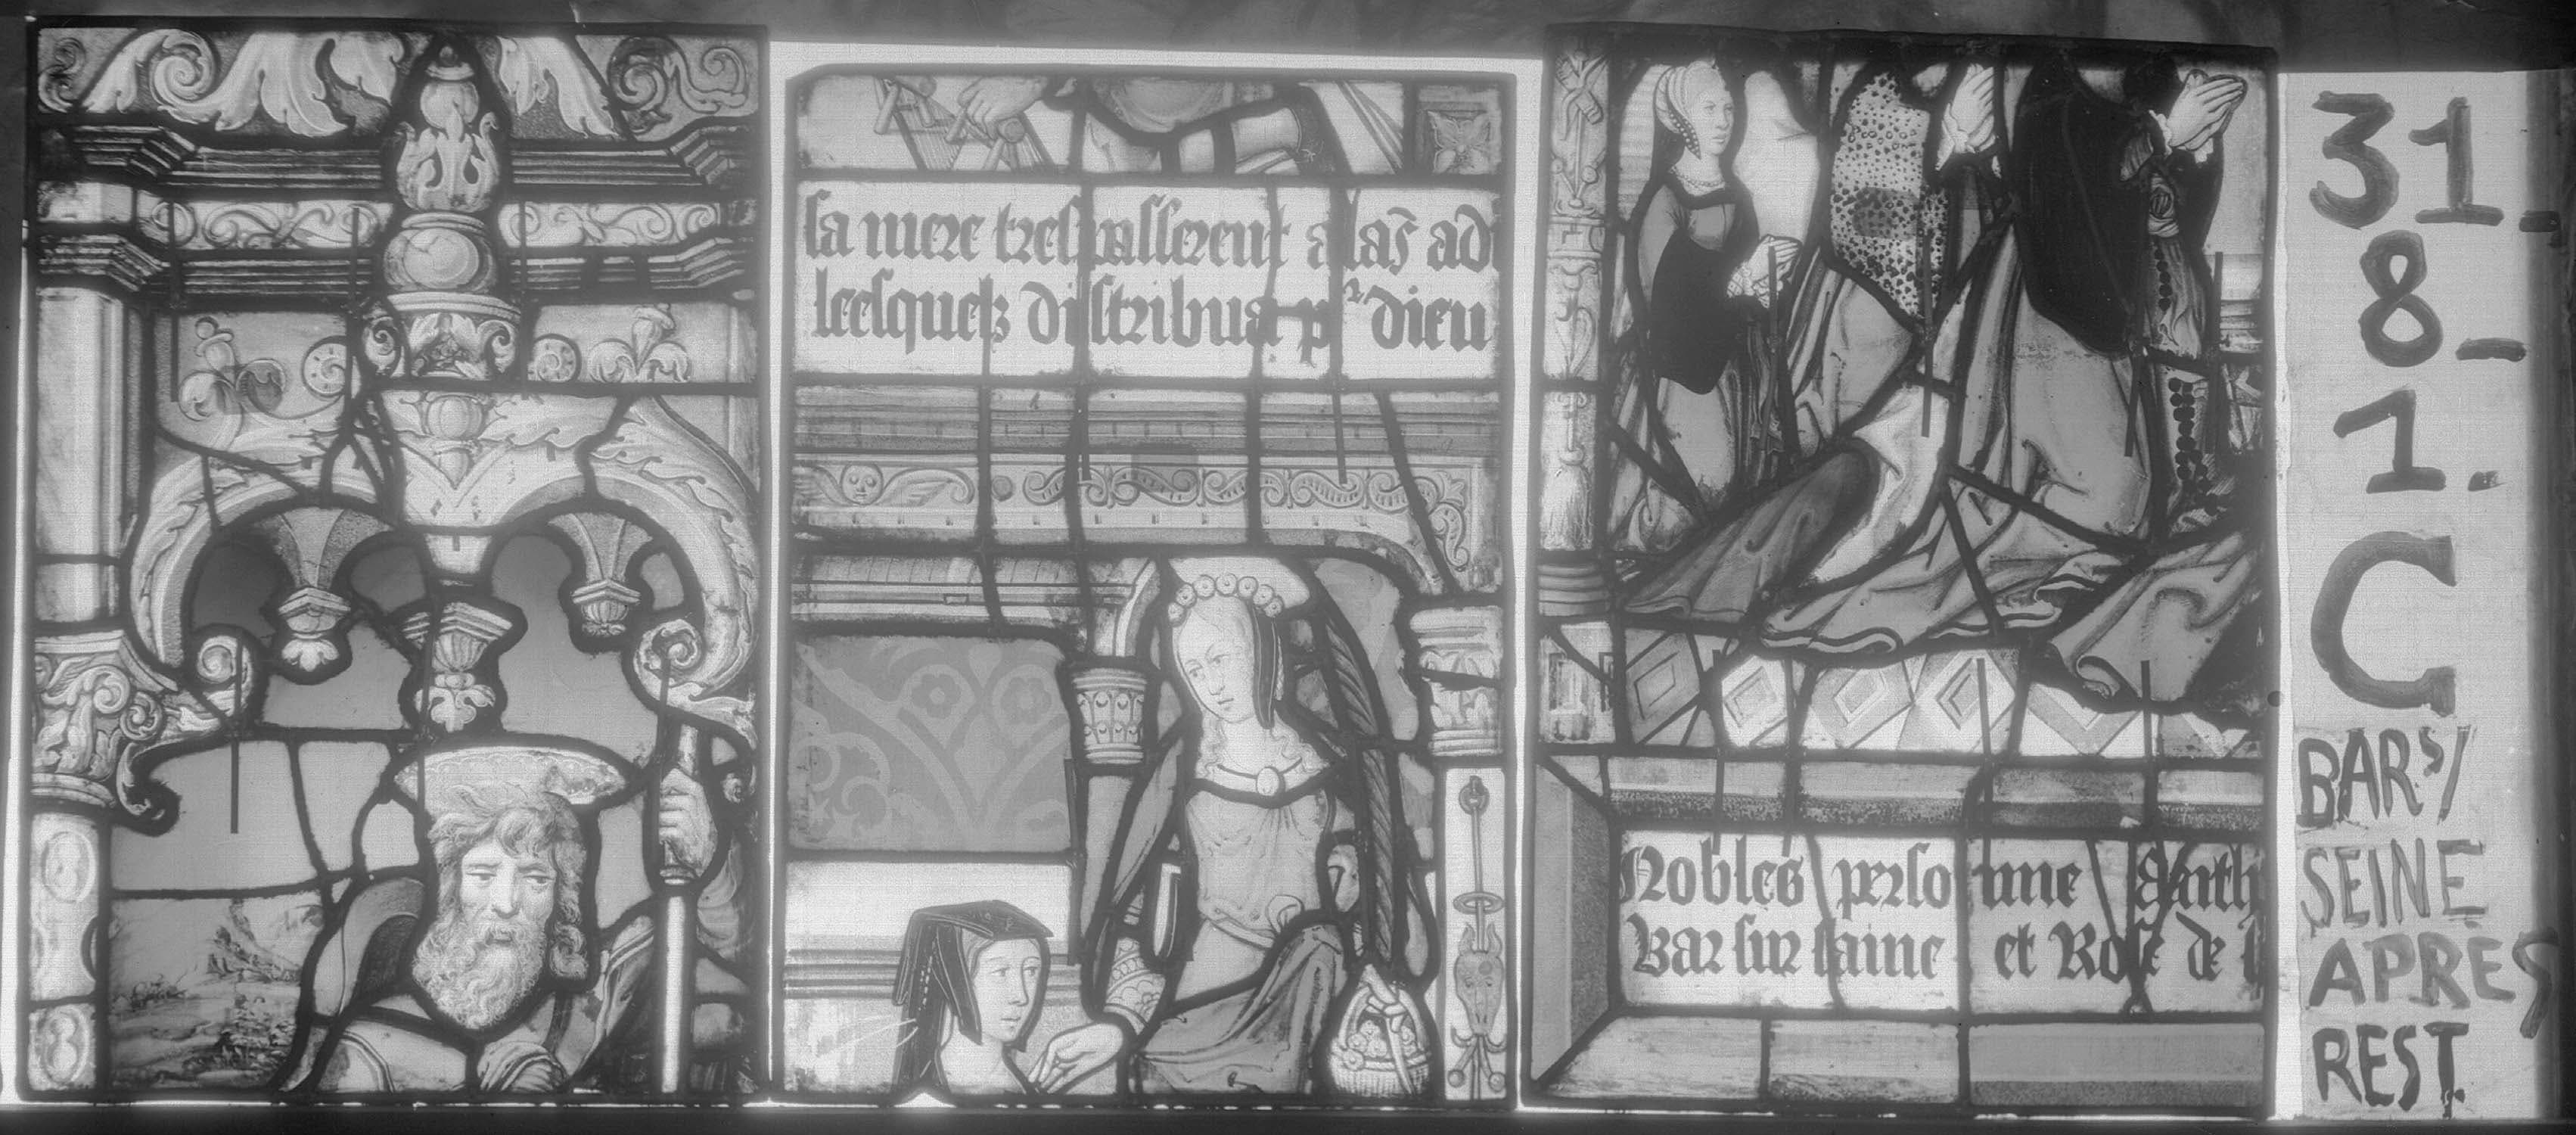 sa mere trespasserent a las ad
leesquelz distribua pr dieu
Nobles personne & anth
Bar sur saine et Rose de
31-
8-
1.
C
BAR S/
SEINE
APRES
REST.